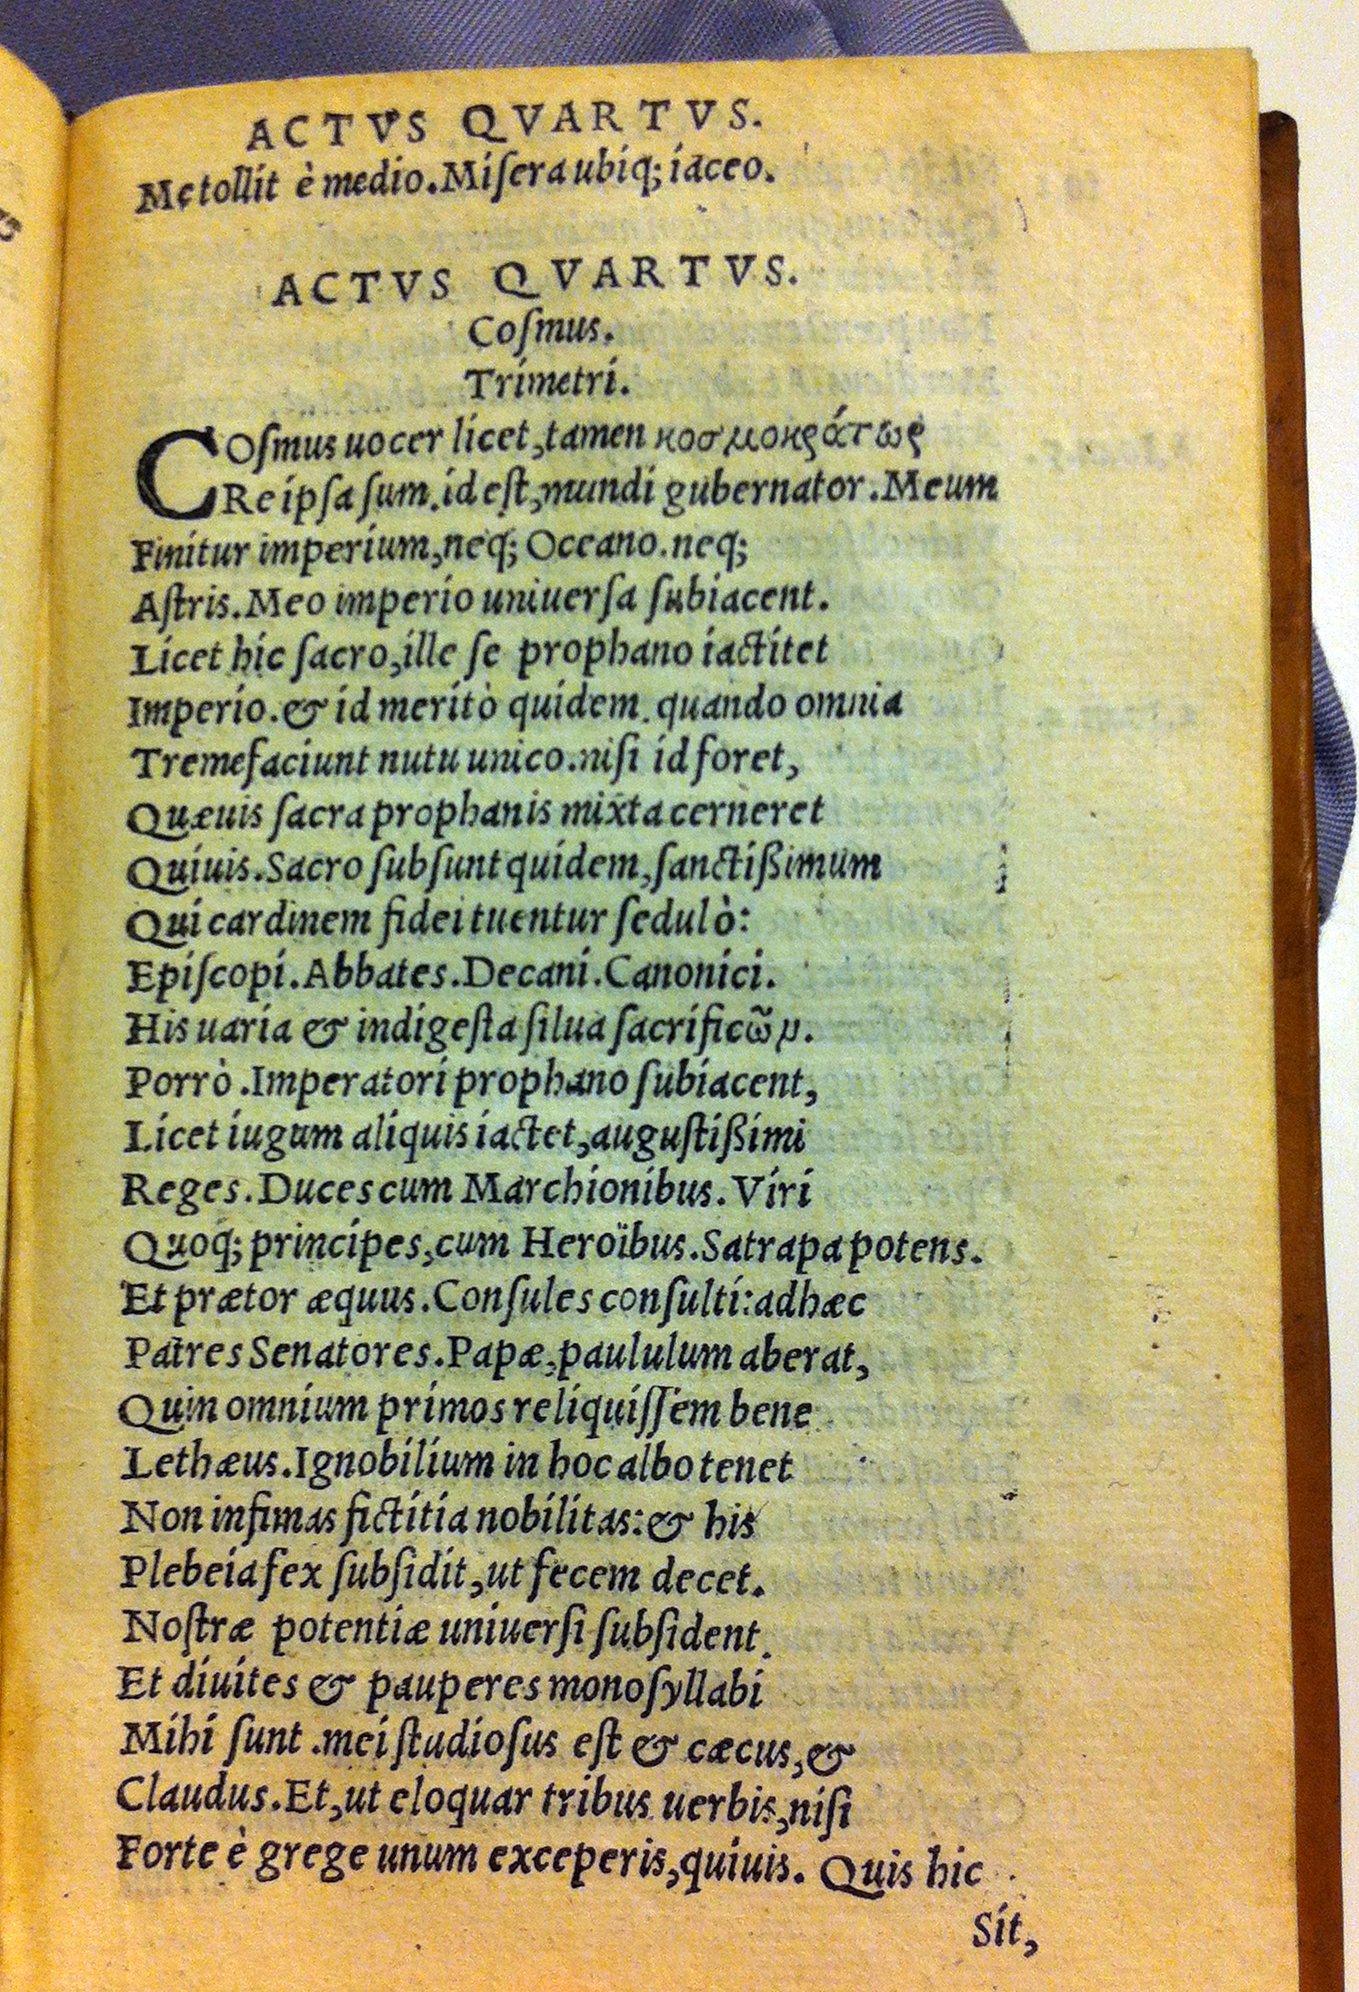 ACTVS QVARTVS.
Me tollit è medio. Miſera ubiq; iaceo.
ACTVS QVARTVS.
Coſmus.
Trimetri.
COſmus uocer licet, tamen κοσμοκράτωρ
Reipſa ſum. id eſt, mundi gubernator. Meum
Finitur imperium, neq; Oceano. neq;
Aſtris. Meo imperio uniuerſa ſubiacent.
Licet hic ſacro, ille ſe prophano iactitet
Imperio. & id meritò quidem. quando omnia
Tremefaciunt nutu unico. niſi id foret,
Quæuis ſacra prophanis mixta cerneret
Quiuis. Sacro ſubſunt quidem, ſanctißimum
Qui cardinem fidei tuentur ſedulò:
Epiſcopi. Abbates. Decani. Canonici.
His uaria & indigeſta ſilua ſacrificῶμ.
Porrò. Imperatori prophano ſubiacent,
Licet iugum aliquis iactet, auguſtißimi
Reges. Duces cum Marchionibus. Viri
Quoq; principes, cum Heroïbus. Satrapa potens.
Et prætor æquus. Conſules conſulti: adhæc
Patres Senatores. Papæ, paululum aberat,
Quin omnium primos reliquiſſem bene
Lethæus. Ignobilium in hoc albo tenet
Non infimas fictitia nobilitas: & his
Plebeia fex ſubſidit, ut fecem decet.
Noſtræ potentiæ uniuerſi ſubſident.
Et diuites & pauperes monoſyllabi
Mihi ſunt. mei ſtudioſus eſt & cæcus, &
Claudus. Et, ut eloquar tribus uerbis, niſi
Forte è grege unum exceperis, quiuis. Quis hic
Sit,